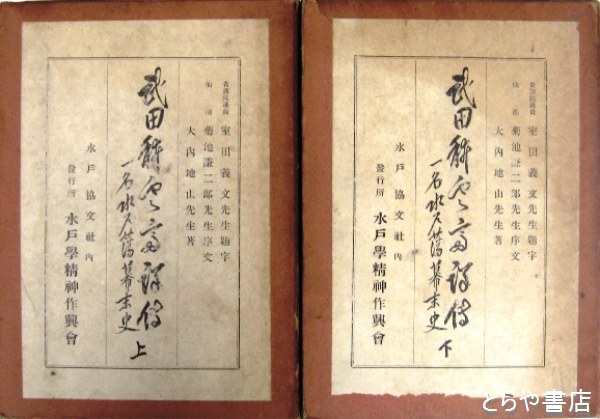 貴族院議員 室田義文先生題字
仙湖 菊池謙二郎先生序文
大内地山先生著
武田耕雲斎詳傳
一名水戸藩幕末史 上
水戸協文社内
發行所 水戸學精神作興會
貴族院議員 室田義文先生題字
仙湖 菊池謙二郎先生序文
大内地山先生著
武田耕雲斎詳傳
一名水戸藩幕末史 下
水戸協文社内
發行所 水戸學精神作興會
とらや書店